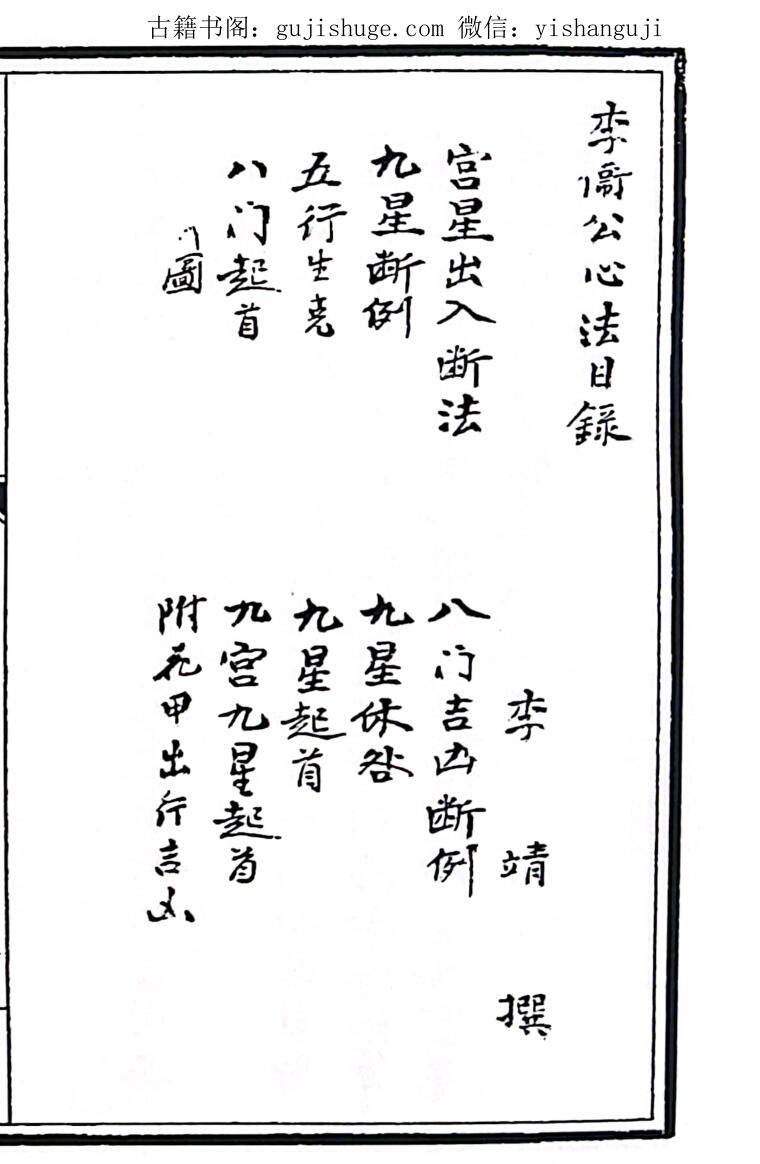 古籍书阁：gujishuge.com 微信：yishanguji
李衞公心法目録
李靖撰
宫星出入断法
八门吉凶断例
九星断例
九星休咎
五行生克
九星起首
八门起首
九宫九星起首
圖
附花甲出行吉凶